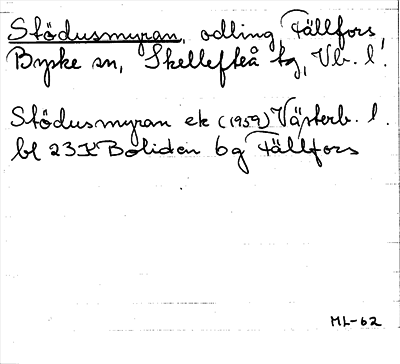 Stödusmyran, odling Fällfors,
Byske sn, Skellefteå tg, Vb. l.
Stödusmyran ek (1959) Västerb. l.
bl 23K Boliden 6g Fällfors
ML-62